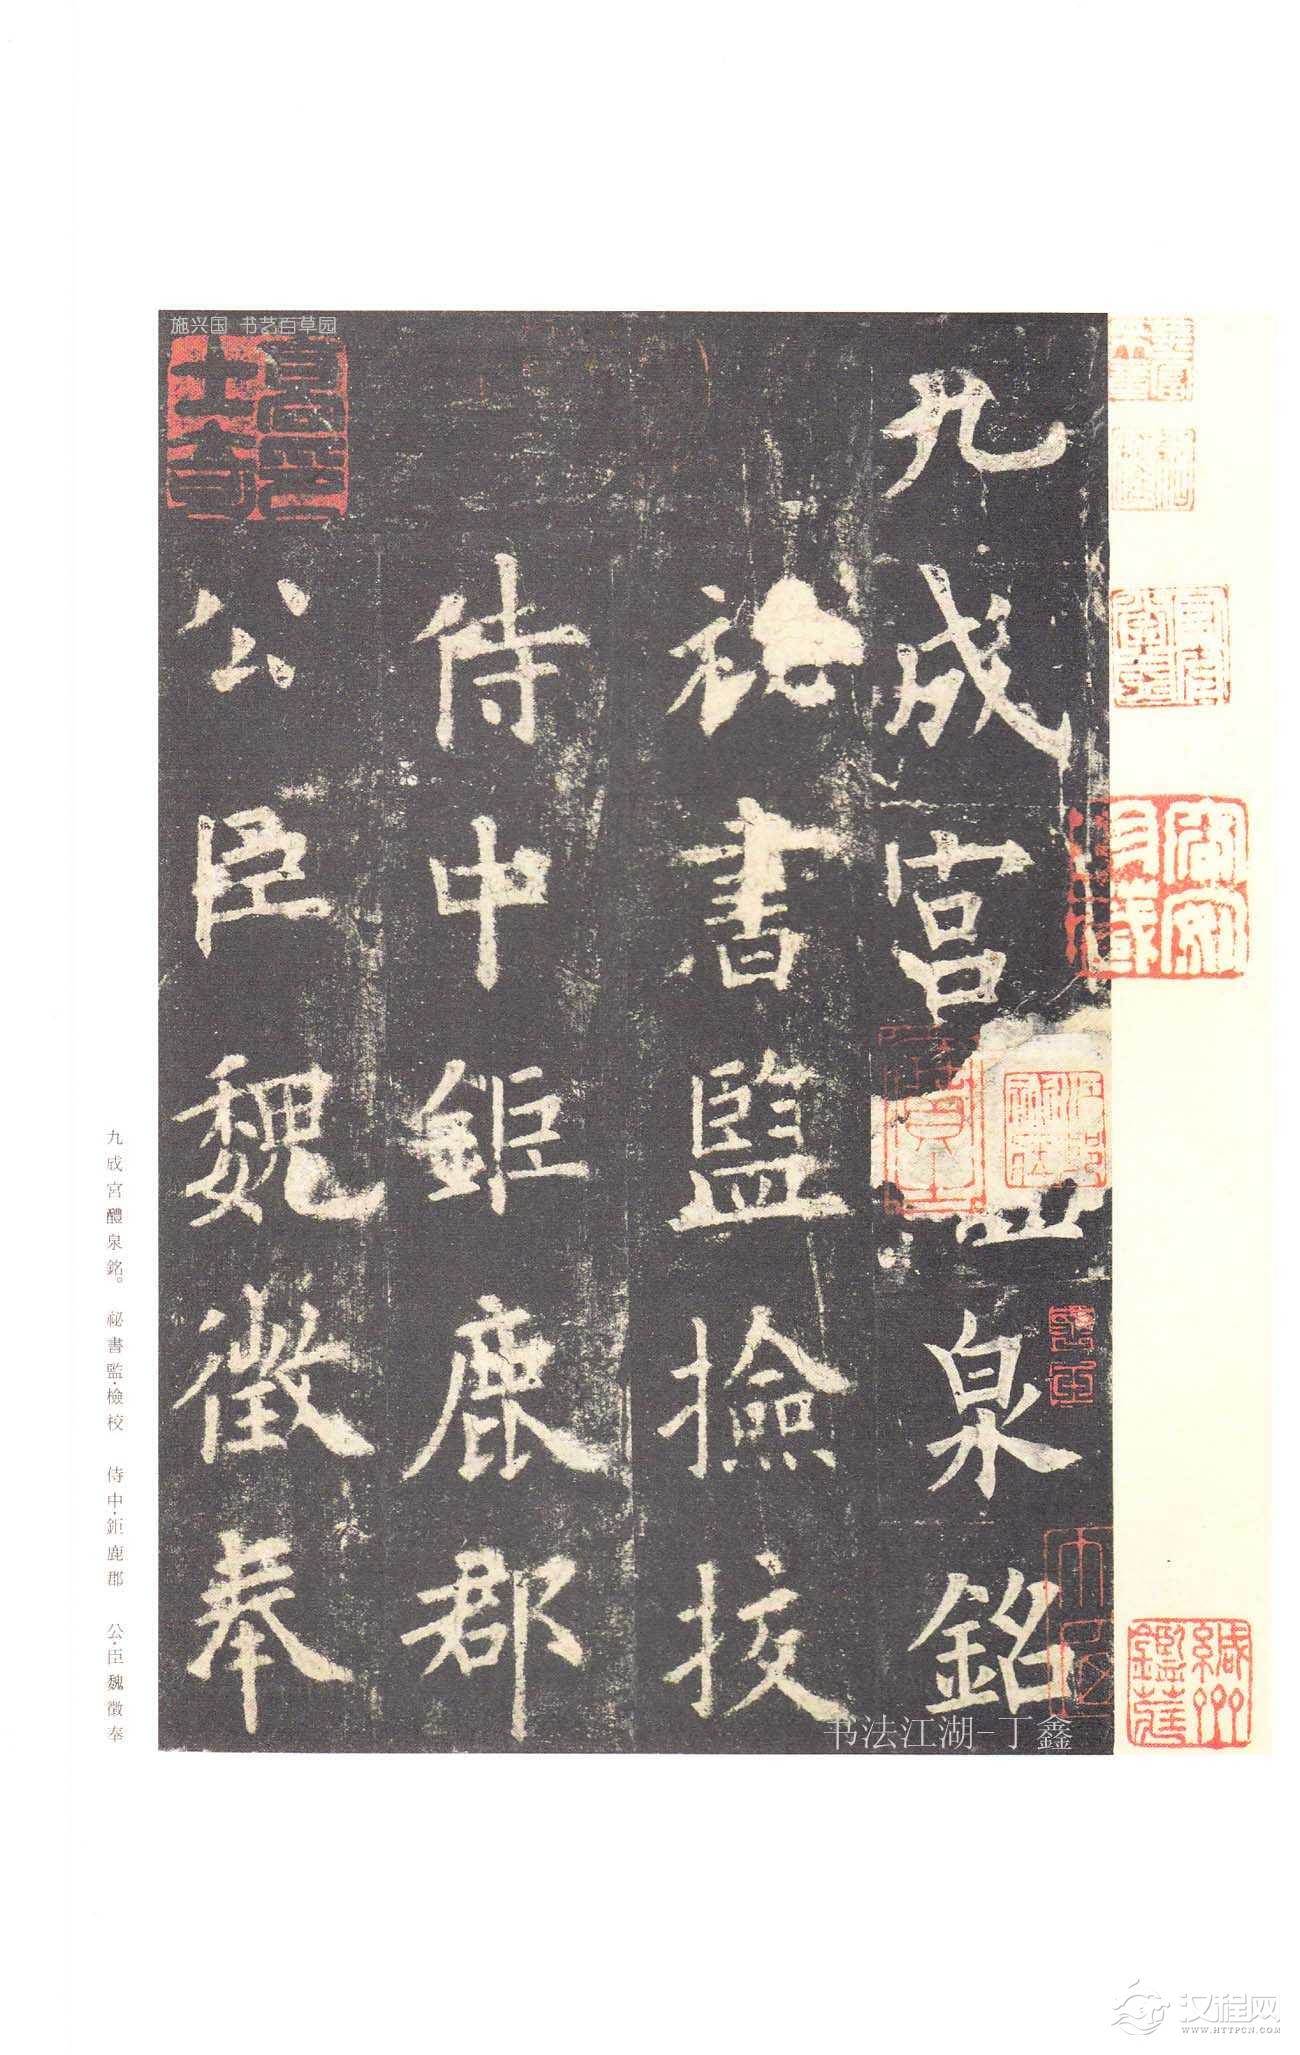 施兴国 书艺百草园
九成宮泉銘
祕書監撿挍
侍中鉅鹿郡
公臣魏徵奉
九成宮醴泉銘。 祕書監·檢校 侍中·鉅鹿郡 公·臣魏徵奉
书法江湖-丁鑫
汉程网
WWW.HTTPCN.COM